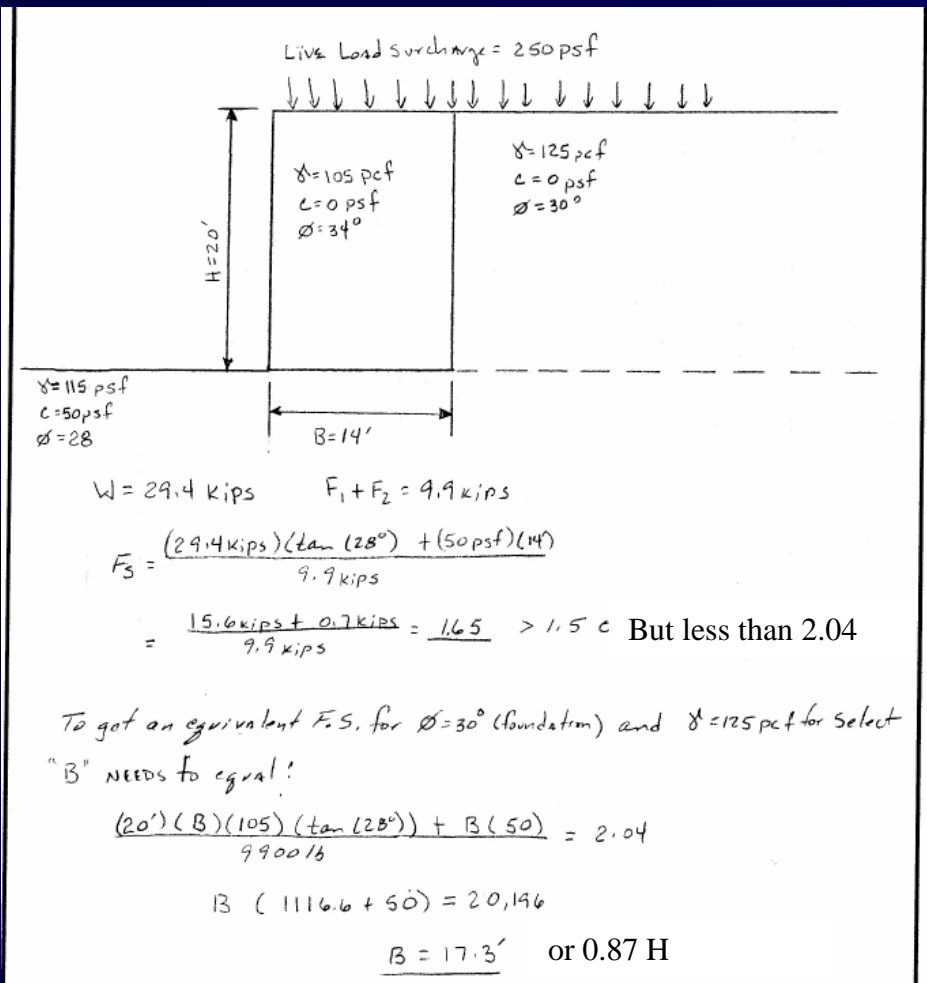 Live Load Surcharge = 250 psf
γ=105 pcf
c=0 psf
ø=34°
γ=125 pcf
c=0 psf
ø=30°
H=20'
γ=115 psf
c=50psf
ø=28
B=14'
W = 29.4 kips F₁ + F₂ = 9.9 kips
Fs = (29.4 kips)(tan (28°) + (50 psf)(14')
9.9 kips
= 15.6 kips + 0.7 kips = 1.65 > 1.5 c But less than 2.04
9.9 kips
To get an equivalent F.S. for ø=30° (foundation) and γ=125 pcf for select
"B" NEEDS to equal:
(20')(B)(105)(tan (28°)) + B(50) = 2.04
9900 lb
B (1116.6 + 50) = 20,196
B = 17.3' or 0.87 H